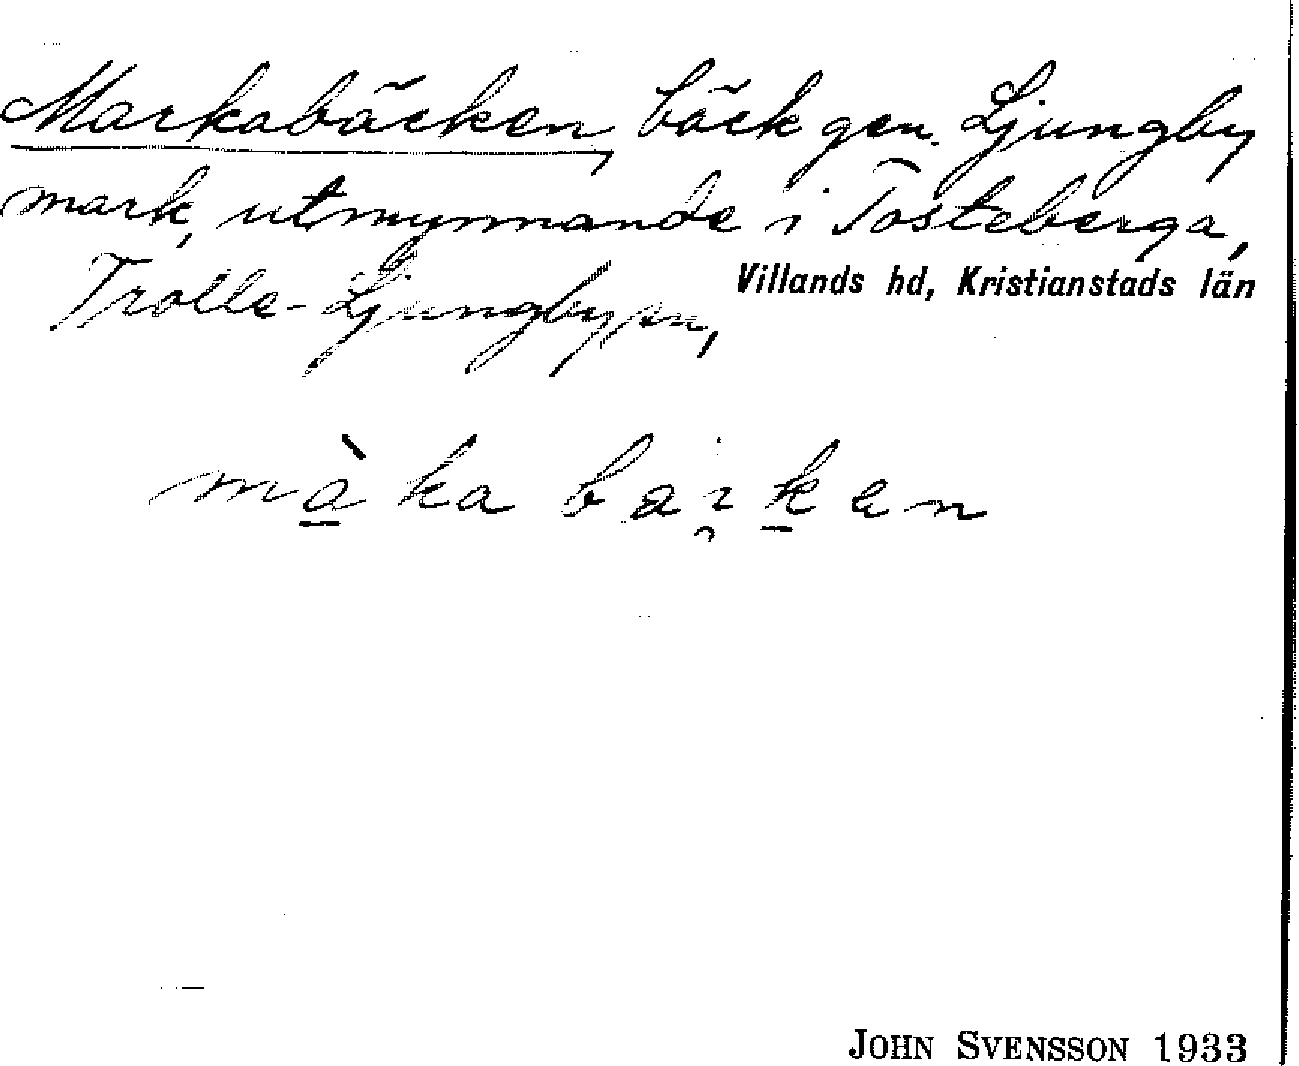 Markabäcken, bäck gen. Ljungby
mark, utmynnande i Tosteberga,
Trolle-Ljungby sn, Villands hd, Kristianstads län
mà̱ka bai̯ḵen
JOHN SVENSSON 1933